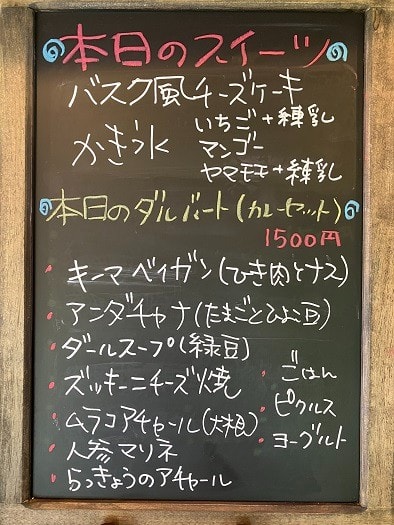 本日のスイーツ
バスク風チーズケーキ
かき氷
いちご+練乳
マンゴー
ヤマモモ+練乳
本日のダルバート(カレーセット)
1500円
・キーマベイガン(ひき肉とナス)
・アンダチャナ(たまごとひよこ豆)
・ダールスープ(緑豆)
・ズッキーニチーズ焼
・ムラコアチャール(大根)
・人参マリネ
・らっきょうのアチャール
・ごはん
・ピクルス
・ヨーグルト